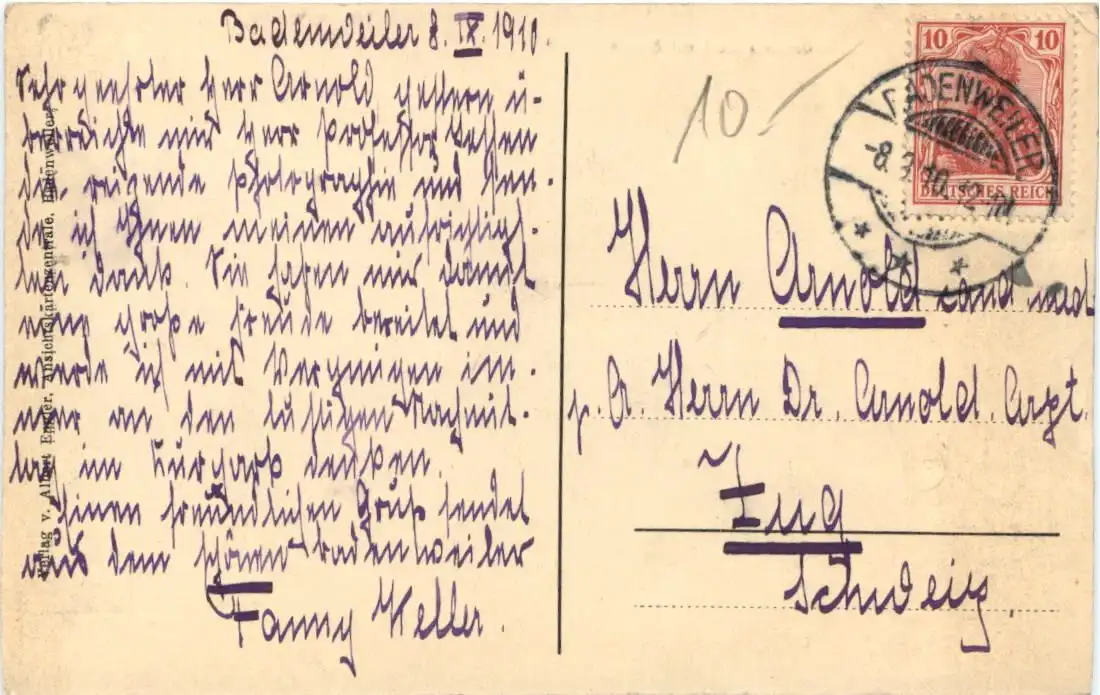 Badenweiler 8. IX. 1910.
Sehr geehrter Herr Arnold gestern ü-
berreichte mir Herr Professor
die reizende Photographie und sen-
de ich Ihnen meinen aufrichtig-
sten Dank. Sie haben mir damit
eine große Freude bereitet und
werde ich mit Vergnügen im-
mer an den lustigen Nachmit-
tag im Kurpark denken.
Einen freundlichen Gruß sendet
aus dem schönen Badenweiler
Fanny Keller.
Verlag v. Albert Ansichtskartenzentrale, Badenweiler.
10.-
10 10
DEUTSCHES REICH
BADENWEILER
-8.9.10.
Herrn Arnold cand. med.
p. A. Herrn Dr. Arnold. Arzt.
Zug
Schweiz.